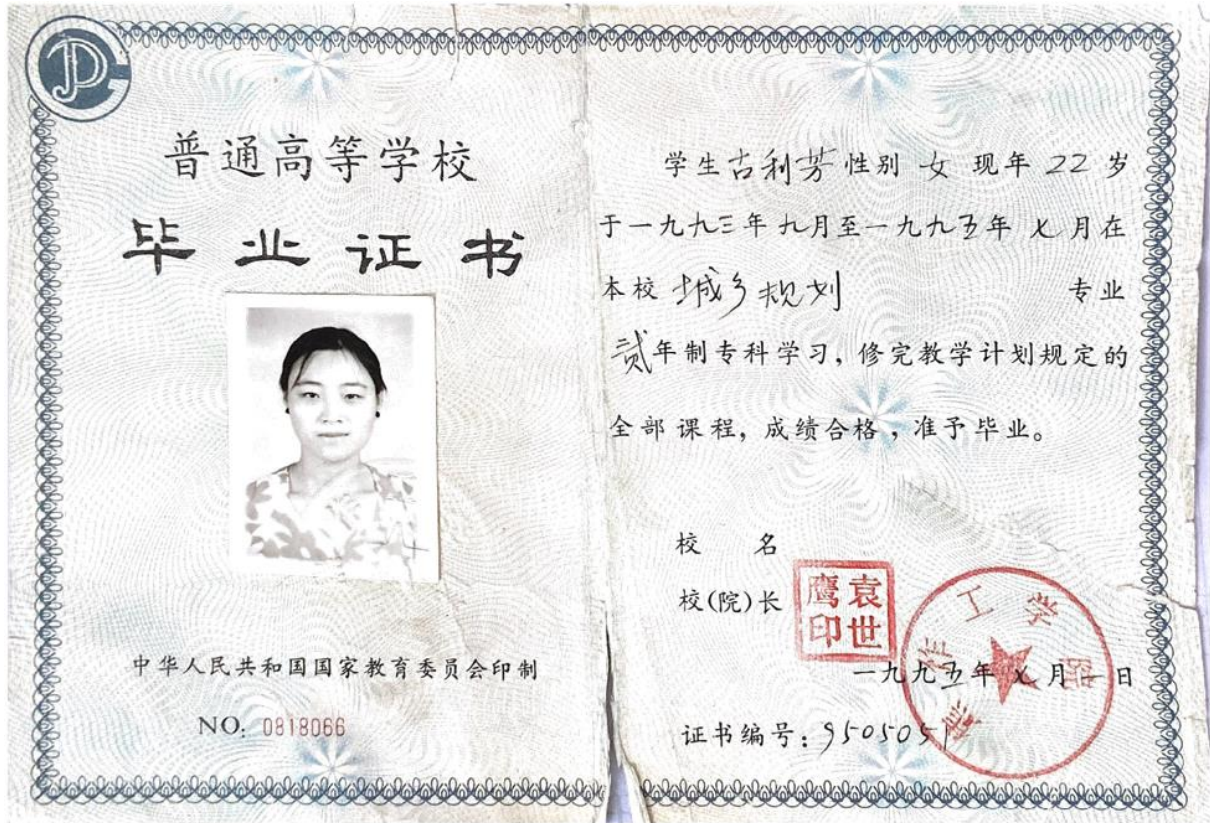 普通高等学校
毕业证书
中华人民共和国国家教育委员会印制
NO: 0818066
学生古利芳性别 女 现年 22 岁
于一九九三年九月至一九九五年 七月在
本校 城乡规划 专业
贰年制专科学习，修完教学计划规定的
全部课程，成绩合格，准予毕业。
校 名
校(院)长
袁世鹰印
焦作工学院
一九九五年 七月一日
证书编号：9505051